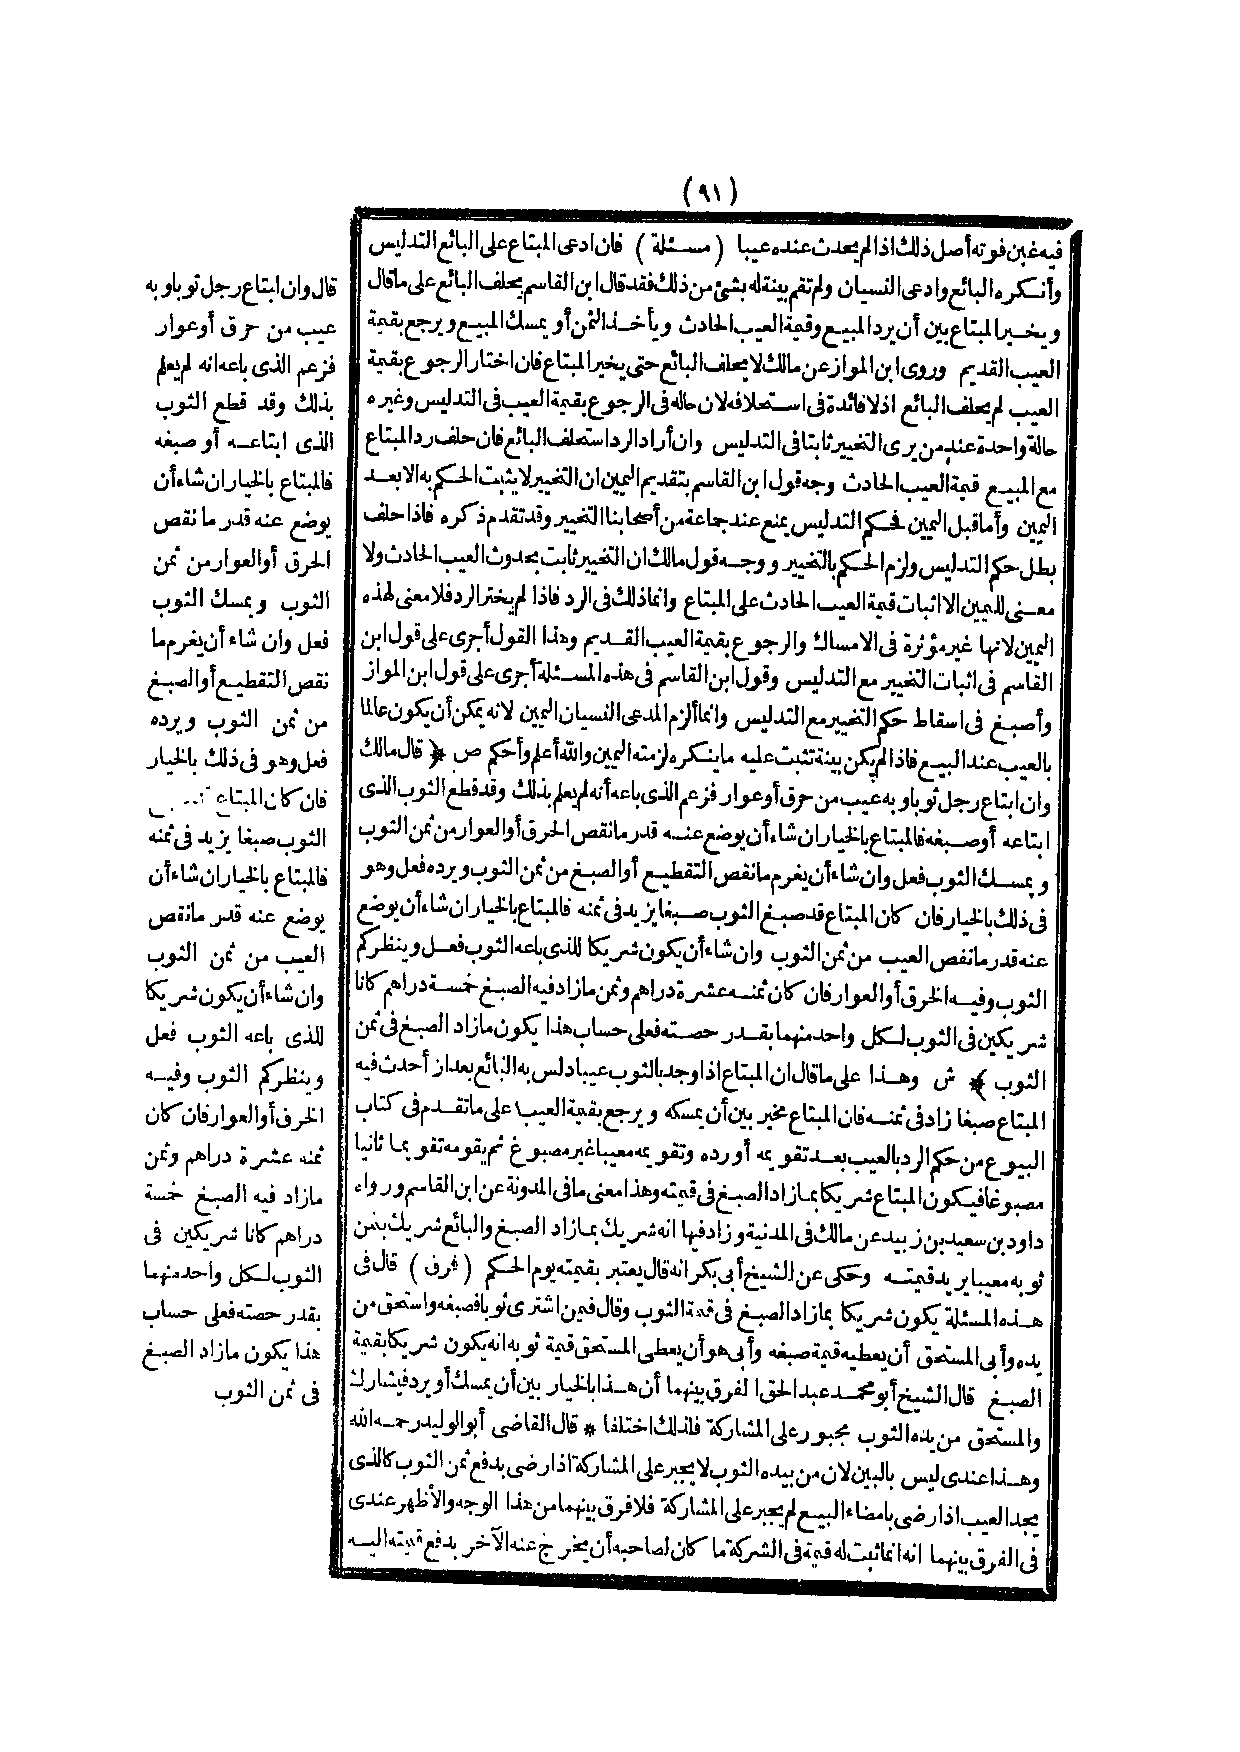 (٩١)
فيه غبن فوته أصل ذلك اذا لم يحدث عنده عيبا (مسئلة) فان ادعى المبتاع على البائع التدليس
وأنكره البائع وادعى النسيان ولم تقم بينة له بشئ من ذلك فقد قال ابن القاسم يحلف البائع على ما قال
ويخير المبتاع بين أن يرد المبيع وقيمة العيب الحادث ويأخذ الثمن أو يمسك المبيع ويرجع بقيمة
العيب القديم وروى ابن المواز عن مالك لا يحلف البائع حتى يخير المبتاع فان اختار الرجوع بقيمة
العيب لم يحلف البائع اذ لا فائدة فى استحلافه لان حاله فى الرجوع بقيمة العيب فى التدليس وغيره
حالة واحدة عند من يرى التخيير ثابتا فى التدليس وان أراد الرد استحلف البائع فان حلف رد المبتاع
مع المبيع قيمة العيب الحادث وجه قول ابن القاسم بتقديم اليمين ان التخيير لا يثبت الحكم به الا بعد
اليمين وأما قبل اليمين فحكم التدليس يمنع عند جماعة من أصحابنا التخيير وقد تقدم ذكره فاذا حلف
بطل حكم التدليس ولزم الحكم بالتخيير ووجه قول مالك ان التخيير ثابت بحدوث العيب الحادث ولا
معنى لليمين الا اثبات قيمة العيب الحادث على المبتاع وانما ذلك فى الرد فاذا لم يختر الرد فلا معنى لهذه
اليمين لانها غير مؤثرة فى الامساك والرجوع بقيمة العيب القديم وهذا القول أجرى على قول ابن
القاسم فى اثبات التخيير مع التدليس وقول ابن القاسم فى هذه المسئلة أجرى على قول ابن المواز
وأصبغ فى اسقاط حكم التخيير مع التدليس وانما ألزم المدعى النسيان اليمين لانه يمكن أن يكون عالما
بالعيب عند البيع فاذا لم يكن بينة تثبت عليه ما ينكره لزمته اليمين والله أعلم وأحكم ص ﴿ قال مالك
وان ابتاع رجل ثوبا وبه عيب من حرق أو عوار فزعم الذى باعه أنه لم يعلم بذلك وقد قطع الثوب الذى
ابتاعه أو صبغه فالمبتاع بالخيار ان شاء أن يوضع عنه قدر ما نقص الحرق أو العوار من ثمن الثوب
ويمسك الثوب فعل وان شاء أن يغرم ما نقص التقطيع أو الصبغ من ثمن الثوب ويرده فعل وهو
فى ذلك بالخيار فان كان المبتاع قد صبغ الثوب صبغا يزيد فى ثمنه فالمبتاع بالخيار ان شاء أن يوضع
عنه قدر ما نقص العيب من ثمن الثوب وان شاء أن يكون شريكا للذى باعه الثوب فعل وينظر كم
الثوب وفيه الخرق أو العوار فان كان ثمنه عشرة دراهم وثمن ما زاد فيه الصبغ خمسة دراهم كانا
شريكين فى الثوب لكل واحد منهما بقدر حصته فعلى حساب هذا يكون ما زاد الصبغ فى ثمن
الثوب ﴾ ش وهذا على ما قال ان المبتاع اذا وجد بالثوب عيبا دلس به البائع بعد از أحدث فيه
المبتاع صبغا زاد فى ثمنه فان المبتاع مخير بين أن يمسكه ويرجع بقيمة العيب على ما تقدم فى كتاب
البيوع من حكم الرد بالعيب بعد تقويمه أو رده وتقويمه معيبا غير مصبوغ ثم يقومه تقويما ثانيا
مصبوغا فيكون المبتاع شريكا بما زاد الصبغ فى قيمته وهذا معنى ما فى المدونة عن ابن القاسم ورواه
داود بن سعيد بن زبيد عن مالك فى المدنية وزاد فيها انه شريك بما زاد الصبغ والبائع شريك بثمن
ثوبه معيبا يريد قيمته وحكى عن الشيخ أبى بكر انه قال يعتبر بقيمته يوم الحكم (فرق) قال فى
هذه المسئلة يكون شريكا بما زاد الصبغ فى قيمة الثوب وقال فيمن اشترى ثوبا فصبغه واستحق من
يده وأبى المستحق أن يعطيه قيمة صبغه وأبى هو أن يعطى المستحق قيمة ثوبه انه يكون شريكا بقيمة
الصبغ قال الشيخ أبو محمد عبد الحق الفرق بينهما أن هذا بالخيار بين أن يمسك أو يرد فيشارك
والمستحق من يده الثوب مجبور على المشاركة فلذلك اختلفا * قال القاضى أبو الوليد رحمه الله
وهذا عندى ليس بالبين لان من بيده الثوب لا يجبر على المشاركة اذا رضى بدفع ثمن الثوب كالذى
يجد العيب اذا رضى بامضاء البيع لم يجبر على المشاركة فلا فرق بينهما من هذا الوجه والأظهر عندى
فى الفرق بينهما انه انما ثبت له قيمة فى الشركة ما كان لصاحبه أن يخرج عنه الآخر بدفع قيمته اليه
قال وان ابتاع رجل ثوبا وبه
عيب من حرق أو عوار
فزعم الذى باعه انه لم يعلم
بذلك وقد قطع الثوب
الذى ابتاعه أو صبغه
فالمبتاع بالخيار ان شاء أن
يوضع عنه قدر ما نقص
الحرق أو العوار من ثمن
الثوب ويمسك الثوب
فعل وان شاء أن يغرم ما
نقص التقطيع أو الصبغ
من ثمن الثوب ويرده
فعل وهو فى ذلك بالخيار
فان كان المبتاع
الثوب صبغا يزيد فى ثمنه
فالمبتاع بالخيار ان شاء أن
يوضع عنه قدر ما نقص
العيب من ثمن الثوب
وان شاء أن يكون شريكا
للذى باعه الثوب فعل
وينظر كم الثوب وفيه
الخرق أو العوار فان كان
ثمنه عشرة دراهم وثمن
ما زاد فيه الصبغ خمسة
دراهم كانا شريكين فى
الثوب لكل واحد منهما
بقدر حصته فعلى حساب
هذا يكون ما زاد الصبغ
فى ثمن الثوب